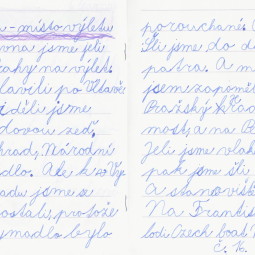 - místo výletu
vna jsme jeli
rahy na výlet.
lavili po Vltavě
iděli jsme
dovou zeď.
hrad, Národní
dlo. Ale k
adu jsme se
ostali, protože
ymadlo bylo
porouchané.
Šli jsme do
patra. A m
jsem zapomě
Pražský
most, a na
Jeli jsme vlak
pak jsme šli
A stanoviš
Na Františ
lodi Czech boats
Č. K.